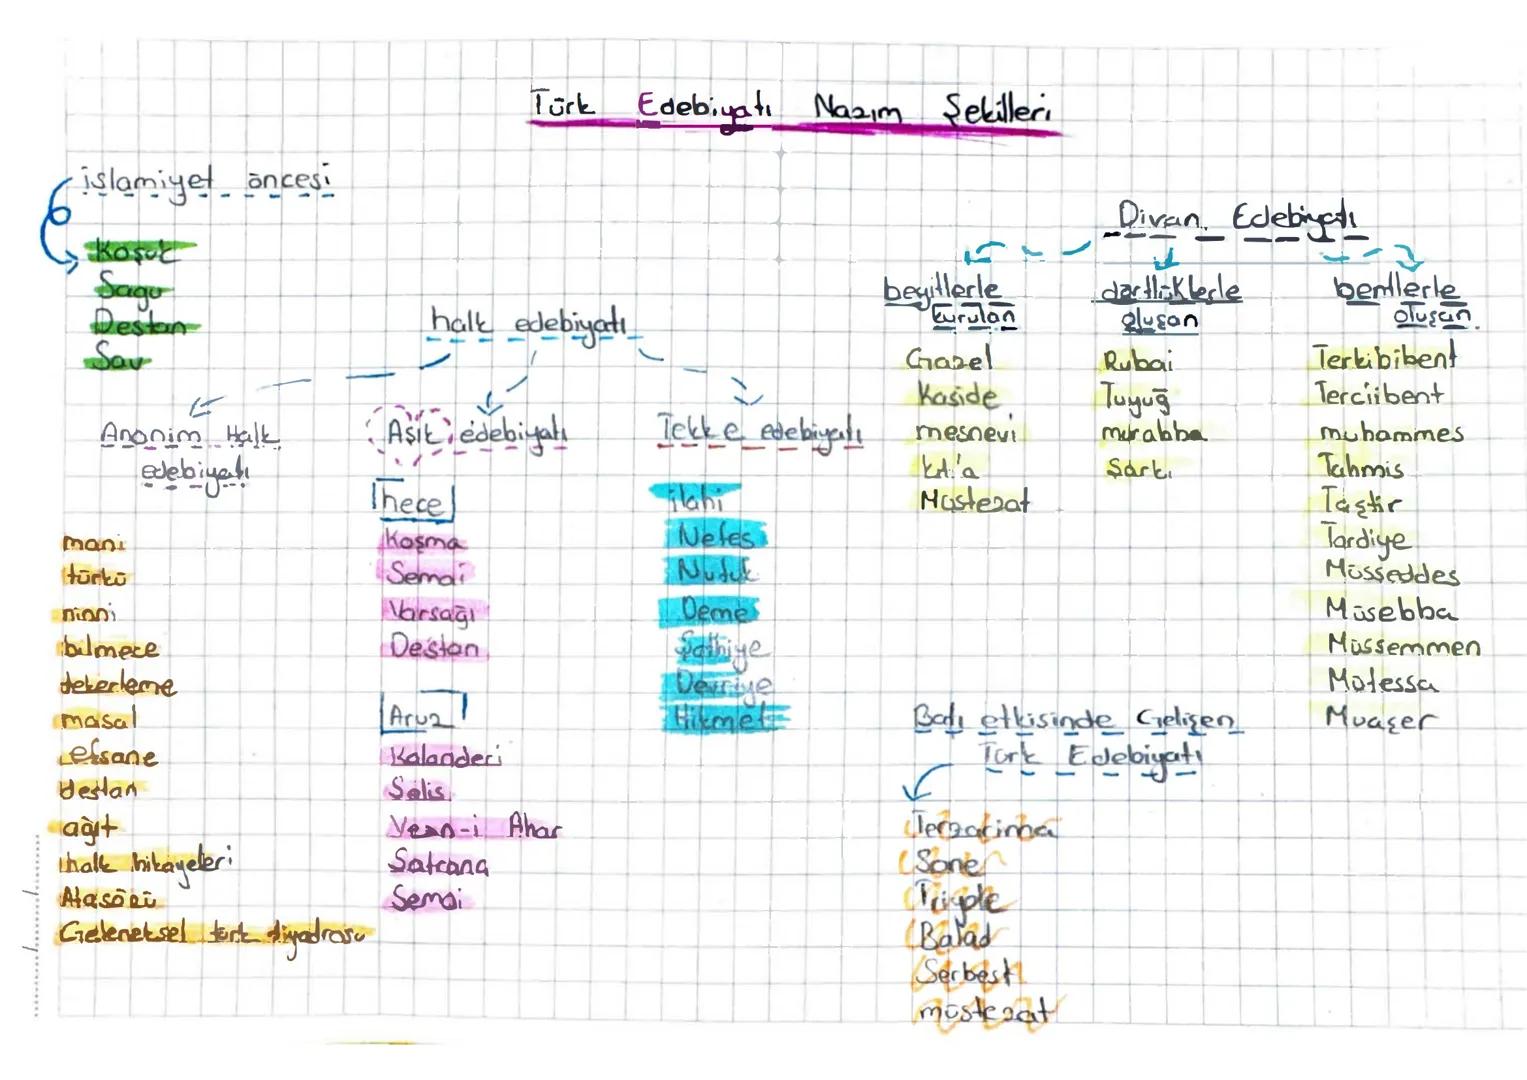 Türk Edebiyatı Nazım Şekilleri
islamiyet öncesi
Koşuk
Sagu
Destan
Sav
halk edebiyatı
Anonim Halk
edebiyatı
mani
türkü
ninni
bilmece
tekerleme
masal
efsane
destan
ağıt
halk hikayeleri
Atasözü
Geleneksel türk tiyadrosu
Aşık edebiyatı
hece
Koşma
Semai
Varsağı
Destan
Aruz
Kalanderi
Selis
Vezn-i Ahar
Satranç
Semai
Tekke edebiyatı
ilahi
Nefes
Nutuk
Deme
Şathiye
Devriye
Hikmet
Divan Edebiyatı
beyitlerle
kurulan
Gazel
Kaside
mesnevi
kıt'a
Müstezat
dörtlüklerle
oluşan
Rubai
Tuyuğ
murabba
Şarkı
bentlerle
oluşan
Terkibibent
Terciibent
muhammes
Tahmis
Taştir
Tardiye
Müsseddes
Müsebba
Müssemmen
Mütessa
Muaşer
Batı etkisinde Gelişen
Türk Edebiyatı
Terzarima
Sone
Triyole
Balad
Serbest
müstezat